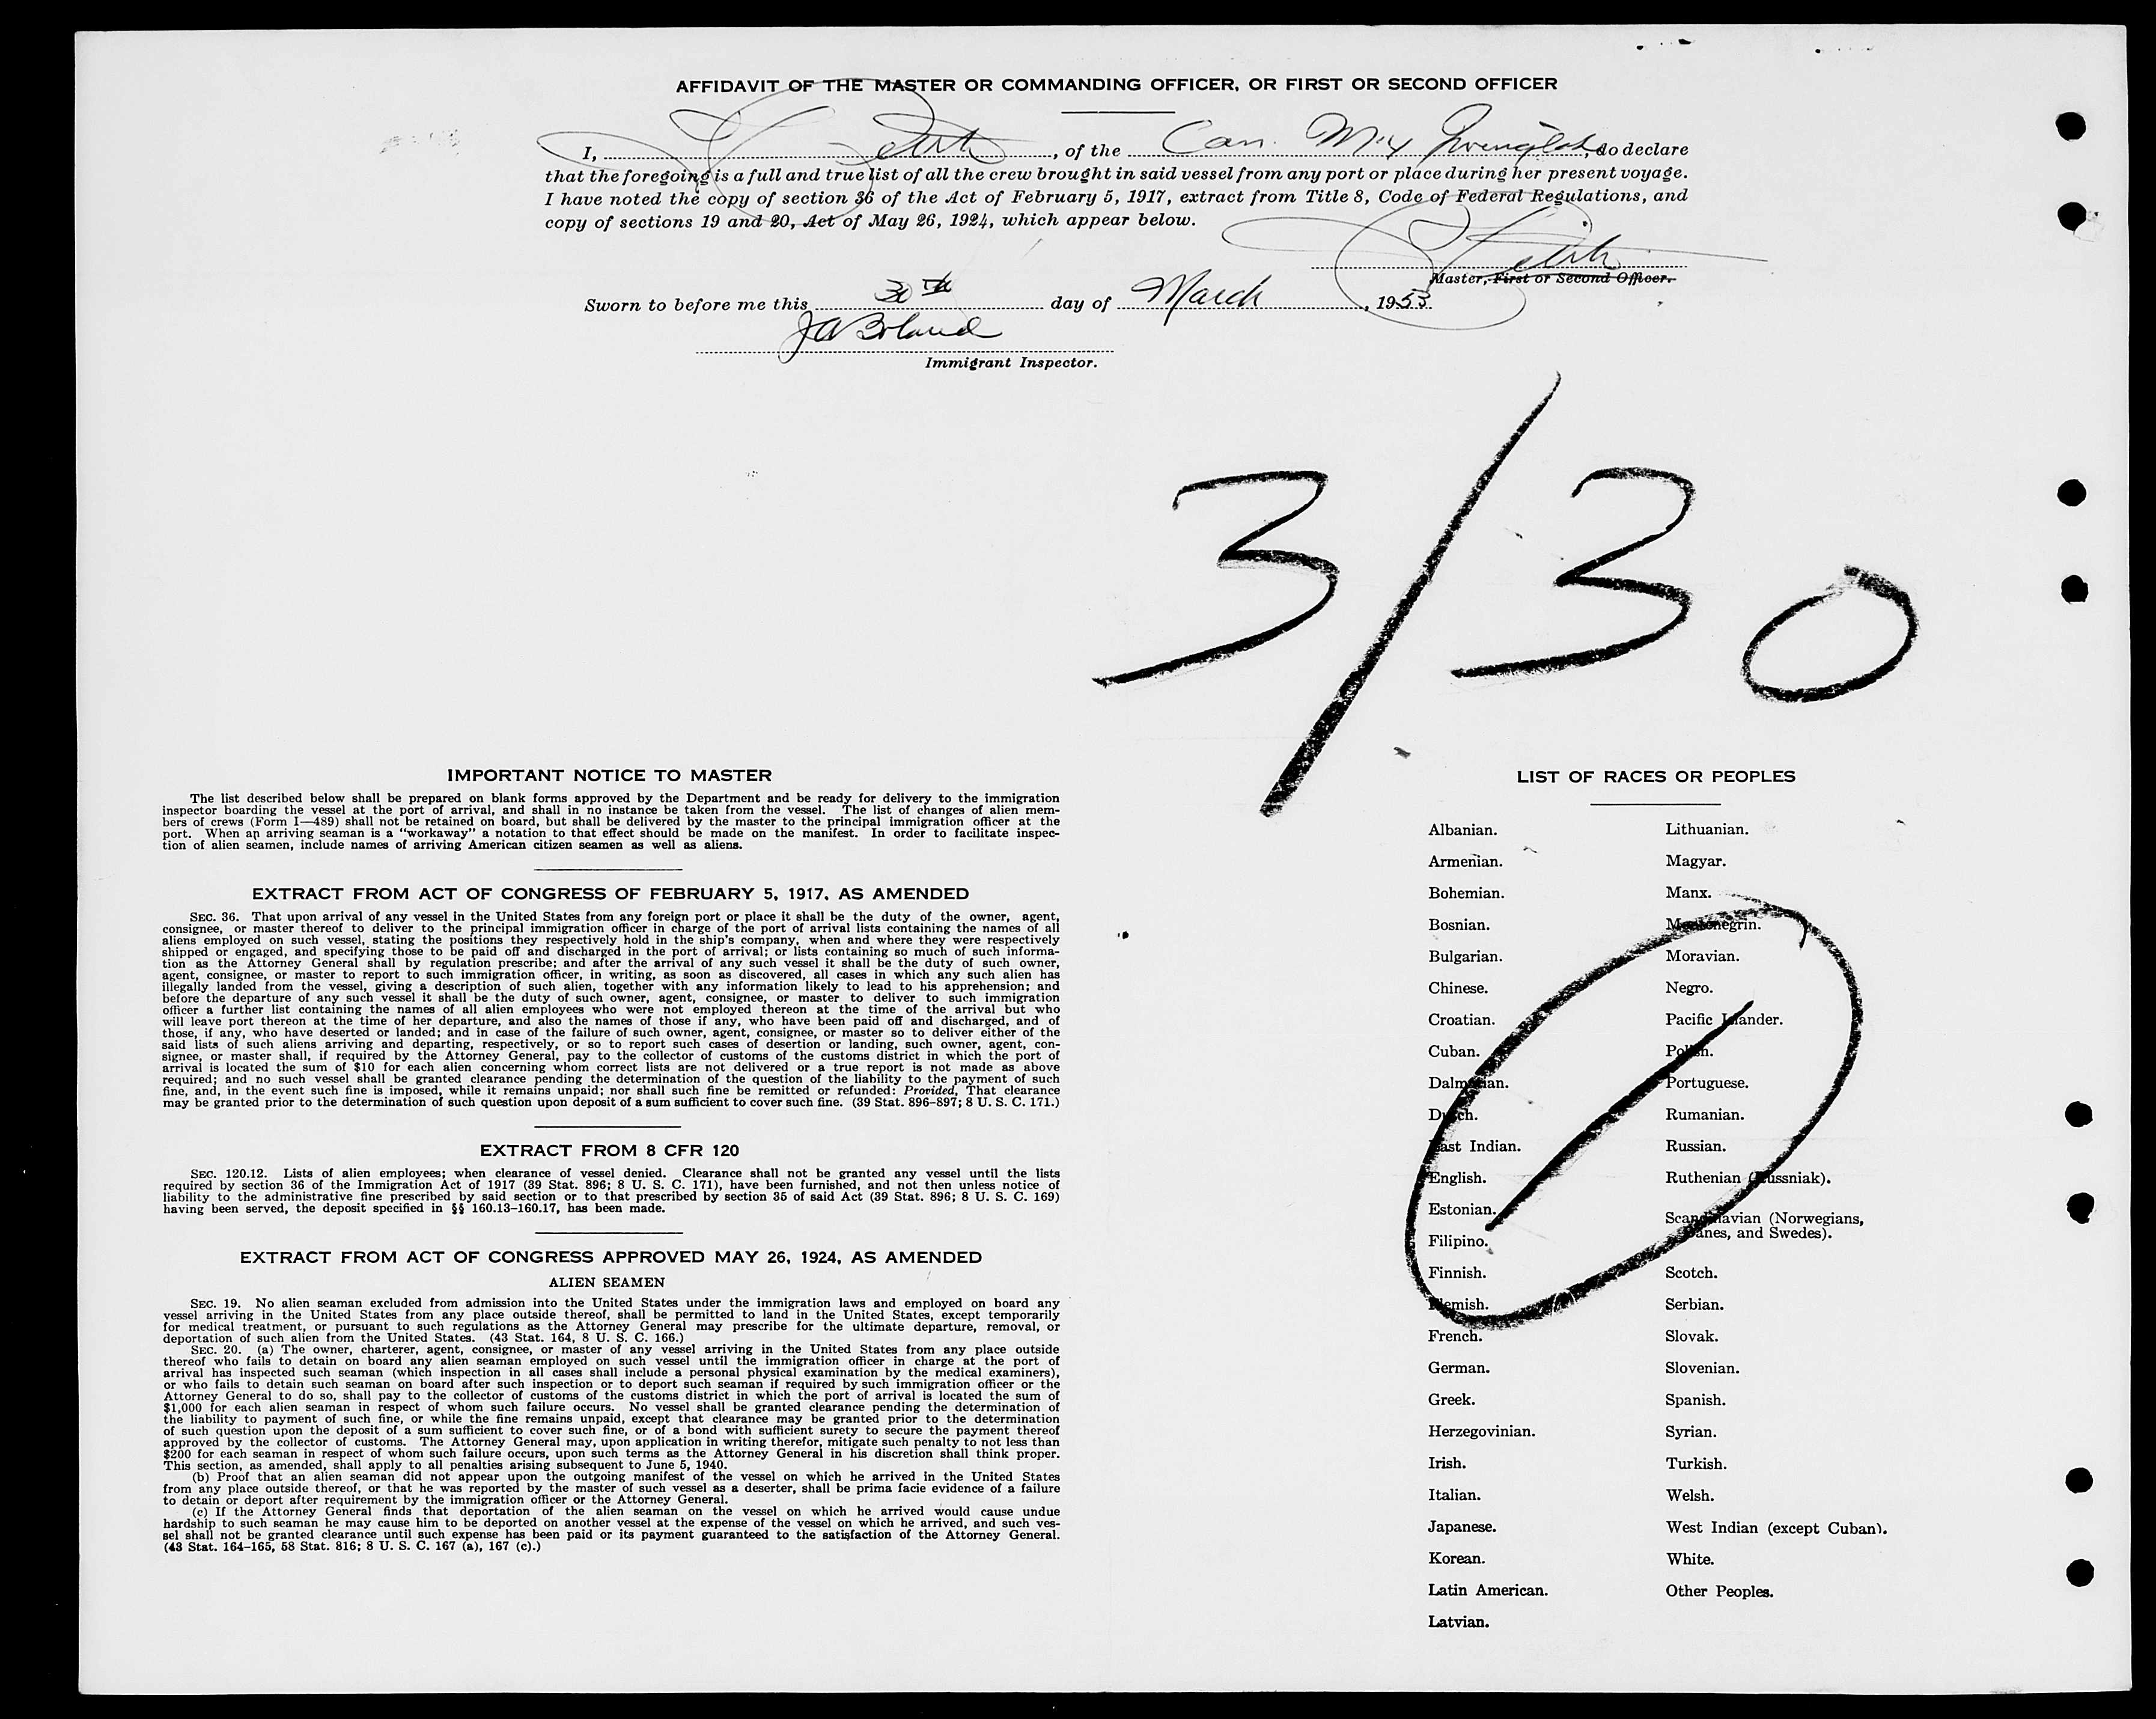 AFFIDAVIT OF THE MASTER OR COMMANDING OFFICER, OR FIRST OR SECOND OFFICER
I, , of the Can. M/V , do declare
that the foregoing is a full and true list of all the crew brought in said vessel from any port or place during her present voyage.
I have noted the copy of section 36 of the Act of February 5, 1917, extract from Title 8, Code of Federal Regulations, and
copy of sections 19 and 20, Act of May 26, 1924, which appear below.
Master, First or Second Officer.
Sworn to before me this 30th day of March, 1953
JA Boland
Immigrant Inspector.
3/30
IMPORTANT NOTICE TO MASTER
The list described below shall be prepared on blank forms approved by the Department and be ready for delivery to the immigration
inspector boarding the vessel at the port of arrival, and shall in no instance be taken from the vessel. The list of changes of alien mem-
bers of crews (Form I—489) shall not be retained on board, but shall be delivered by the master to the principal immigration officer at the
port. When an arriving seaman is a "workaway" a notation to that effect should be made on the manifest. In order to facilitate inspec-
tion of alien seamen, include names of arriving American citizen seamen as well as aliens.
EXTRACT FROM ACT OF CONGRESS OF FEBRUARY 5, 1917, AS AMENDED
SEC. 36. That upon arrival of any vessel in the United States from any foreign port or place it shall be the duty of the owner, agent,
consignee, or master thereof to deliver to the principal immigration officer in charge of the port of arrival lists containing the names of all
aliens employed on such vessel, stating the positions they respectively hold in the ship's company, when and where they were respectively
shipped or engaged, and specifying those to be paid off and discharged in the port of arrival; or lists containing so much of such informa-
tion as the Attorney General shall by regulation prescribe; and after the arrival of any such vessel it shall be the duty of such owner,
agent, consignee, or master to report to such immigration officer, in writing, as soon as discovered, all cases in which any such alien has
illegally landed from the vessel, giving a description of such alien, together with any information likely to lead to his apprehension; and
before the departure of any such vessel it shall be the duty of such owner, agent, consignee, or master to deliver to such immigration
officer a further list containing the names of all alien employees who were not employed thereon at the time of the arrival but who
will leave port thereon at the time of her departure, and also the names of those if any, who have been paid off and discharged, and of
those, if any, who have deserted or landed; and in case of the failure of such owner, agent, consignee, or master so to deliver either of the
said lists of such aliens arriving and departing, respectively, or so to report such cases of desertion or landing, such owner, agent, con-
signee, or master shall, if required by the Attorney General, pay to the collector of customs of the customs district in which the port of
arrival is located the sum of $10 for each alien concerning whom correct lists are not delivered or a true report is not made as above
required; and no such vessel shall be granted clearance pending the determination of the question of the liability to the payment of such
fine, and, in the event such fine is imposed, while it remains unpaid; nor shall such fine be remitted or refunded: Provided, That clearance
may be granted prior to the determination of such question upon deposit of a sum sufficient to cover such fine. (39 Stat. 896–897; 8 U. S. C. 171.)
EXTRACT FROM 8 CFR 120
SEC. 120.12. Lists of alien employees; when clearance of vessel denied. Clearance shall not be granted any vessel until the lists
required by section 36 of the Immigration Act of 1917 (39 Stat. 896; 8 U. S. C. 171), have been furnished, and not then unless notice of
liability to the administrative fine prescribed by said section or to that prescribed by section 35 of said Act (39 Stat. 896; 8 U. S. C. 169)
having been served, the deposit specified in §§ 160.13–160.17, has been made.
EXTRACT FROM ACT OF CONGRESS APPROVED MAY 26, 1924, AS AMENDED
ALIEN SEAMEN
SEC. 19. No alien seaman excluded from admission into the United States under the immigration laws and employed on board any
vessel arriving in the United States from any place outside thereof, shall be permitted to land in the United States, except temporarily
for medical treatment, or pursuant to such regulations as the Attorney General may prescribe for the ultimate departure, removal, or
deportation of such alien from the United States. (43 Stat. 164, 8 U. S. C. 166.)
SEC. 20. (a) The owner, charterer, agent, consignee, or master of any vessel arriving in the United States from any place outside
thereof who fails to detain on board any alien seaman employed on such vessel until the immigration officer in charge at the port of
arrival has inspected such seaman (which inspection in all cases shall include a personal physical examination by the medical examiners),
or who fails to detain such seaman on board after such inspection or to deport such seaman if required by such immigration officer or the
Attorney General to do so, shall pay to the collector of customs of the customs district in which the port of arrival is located the sum of
$1,000 for each alien seaman in respect of whom such failure occurs. No vessel shall be granted clearance pending the determination of
the liability to payment of such fine, or while the fine remains unpaid, except that clearance may be granted prior to the determination
of such question upon the deposit of a sum sufficient to cover such fine, or of a bond with sufficient surety to secure the payment thereof
approved by the collector of customs. The Attorney General may, upon application in writing therefor, mitigate such penalty to not less than
$200 for each seaman in respect of whom such failure occurs, upon such terms as the Attorney General in his discretion shall think proper.
This section, as amended, shall apply to all penalties arising subsequent to June 5, 1940.
(b) Proof that an alien seaman did not appear upon the outgoing manifest of the vessel on which he arrived in the United States
from any place outside thereof, or that he was reported by the master of such vessel as a deserter, shall be prima facie evidence of a failure
to detain or deport after requirement by the immigration officer or the Attorney General.
(c) If the Attorney General finds that deportation of the alien seaman on the vessel on which he arrived would cause undue
hardship to such seaman he may cause him to be deported on another vessel at the expense of the vessel on which he arrived, and such ves-
sel shall not be granted clearance until such expense has been paid or its payment guaranteed to the satisfaction of the Attorney General.
(43 Stat. 164–165, 58 Stat. 816; 8 U. S. C. 167 (a), 167 (c).)
LIST OF RACES OR PEOPLES
Albanian.
Armenian.
Bohemian.
Bosnian.
Bulgarian.
Chinese.
Croatian.
Cuban.
Dalmatian.
Dutch.
East Indian.
English.
Estonian.
Filipino.
Finnish.
Flemish.
French.
German.
Greek.
Herzegovinian.
Irish.
Italian.
Japanese.
Korean.
Latin American.
Latvian.
Lithuanian.
Magyar.
Manx.
Montenegrin.
Moravian.
Negro.
Pacific Islander.
Polish.
Portuguese.
Rumanian.
Russian.
Ruthenian (Russniak).
Scandinavian (Norwegians,
Danes, and Swedes).
Scotch.
Serbian.
Slovak.
Slovenian.
Spanish.
Syrian.
Turkish.
Welsh.
West Indian (except Cuban).
White.
Other Peoples.